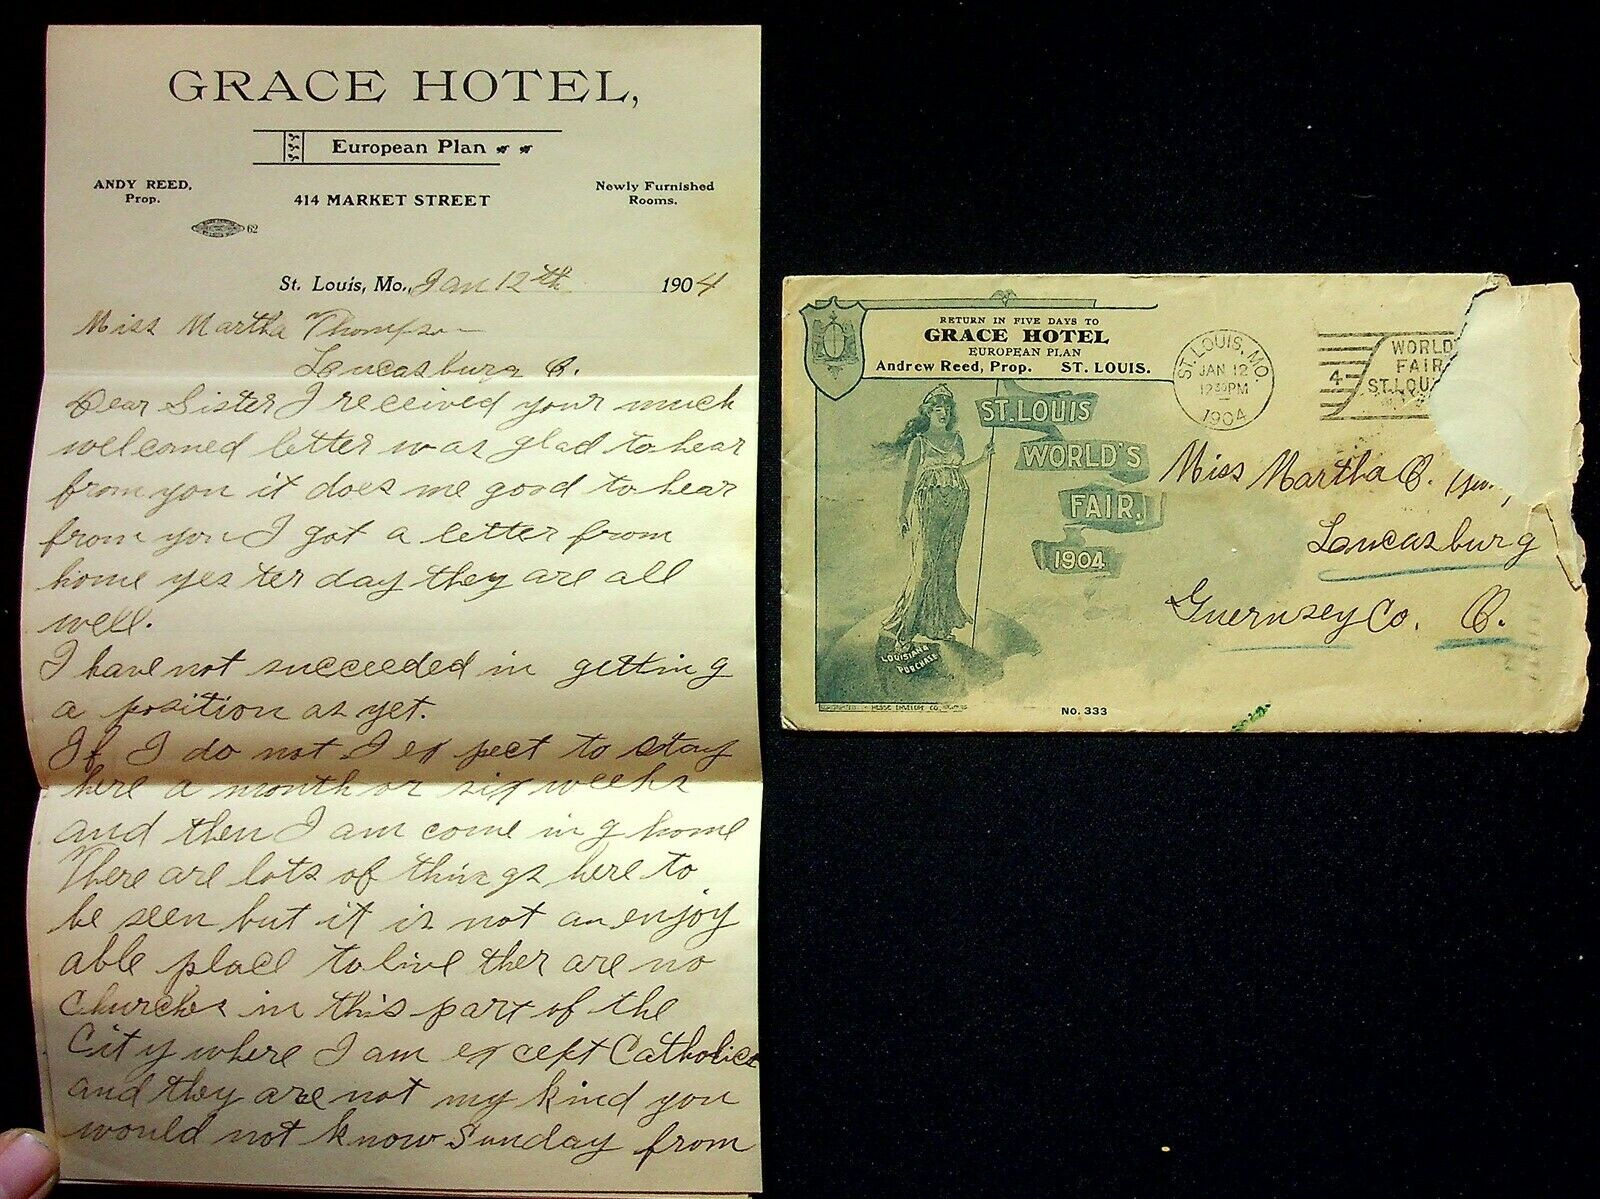 GRACE HOTEL,
European Plan
ANDY REED,
Prop.
414 MARKET STREET
Newly Furnished
Rooms.
62
St. Louis, Mo., Jan 12th 1904
Miss Martha Thompson
Lancasburg O.
Dear Sister I received your much
welcomed letter was glad to hear
from you it does me good to hear
from you I got a letter from
home yes ter day they are all
well.
I have not succeeded in getting
a position as yet.
If I do not I ex pect to stay
here a month or six weeks
and then I am come in g home
There are lots of things here to
be seen but it is not an enjoy
able place to live ther are no
Churches in this part of the
City where I am ex cept Catholics
and they are not my kind you
would not know Sunday from
RETURN IN FIVE DAYS TO
GRACE HOTEL
EUROPEAN PLAN
Andrew Reed, Prop. ST. LOUIS.
ST. LOUIS
WORLD'S
FAIR.
1904
LOUISIANA
PURCHASE
HESSE ENVELOPE CO.
No. 333
ST. LOUIS, MO.
JAN 12
12 30 PM
1904
4
WORLD'
FAIR
ST. LOU
Miss Martha O.
Lancasburg
Guernsey Co. O.